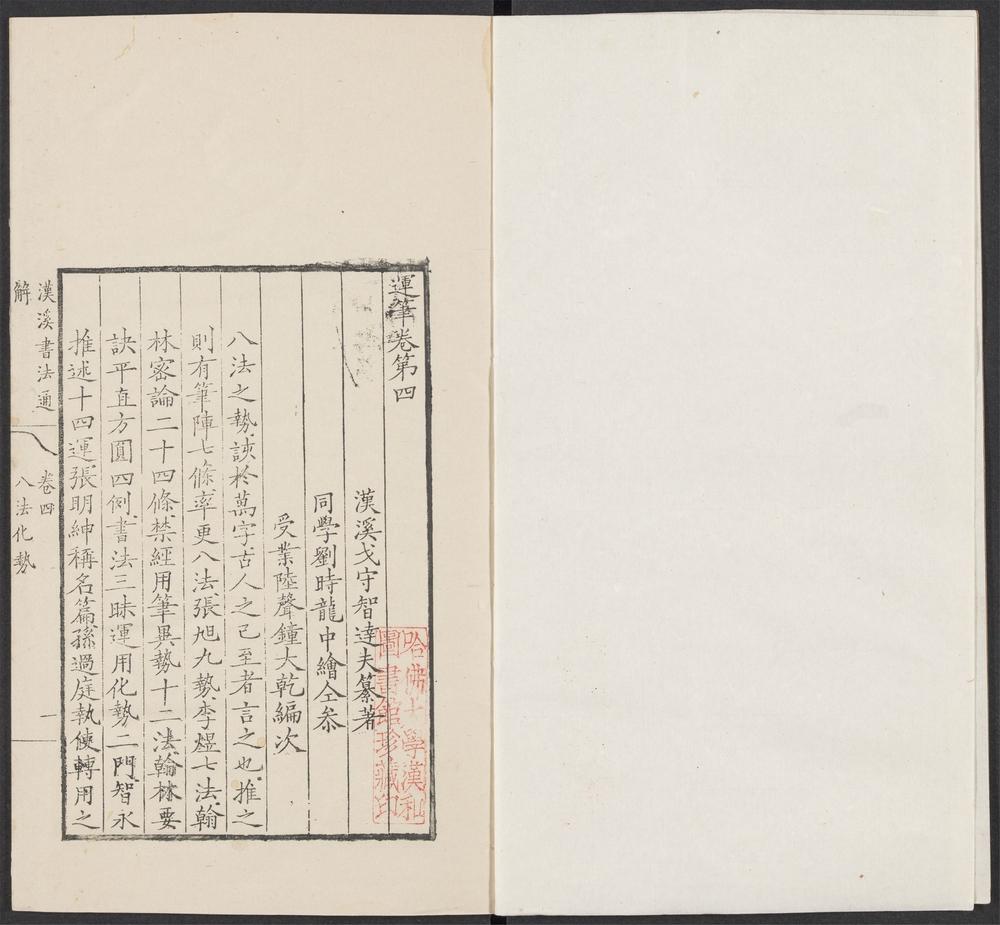 運筆卷第四
漢溪戈守智達夫纂著
同學劉時龍中繪仝叅
受業陸聲鐘大乾編次
八法之勢該於萬字古人之己至者言之也推之
則有筆陣七條率更八法張旭九勢李煜七法翰
林密論二十四條禁經用筆異勢十二法翰林要
訣平直方圓四例書法三昧運用化勢二門智永
推述十四運張明紳稱名篇孫過庭執使轉用之
漢溪書法通
解
卷四
八法化勢
一
哈佛大學漢和
圖書館珍藏印